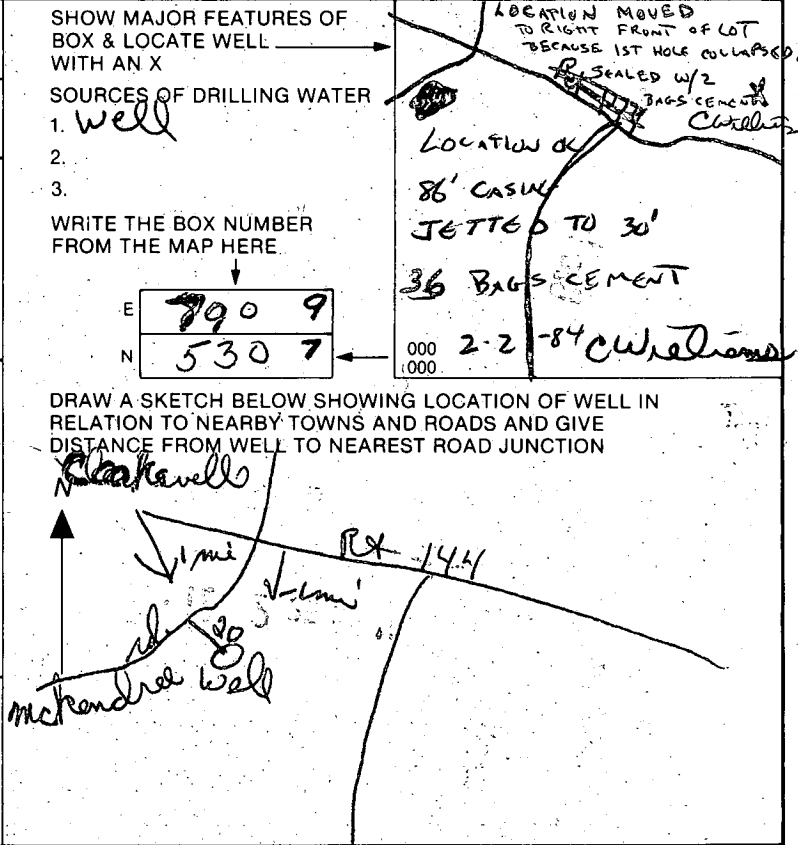 SHOW MAJOR FEATURES OF
BOX & LOCATE WELL
WITH AN X
SOURCES OF DRILLING WATER
1. Well
2.
3.
WRITE THE BOX NUMBER
FROM THE MAP HERE
E 790 9
N 530 7
LOCATION MOVED
TO RIGHT FRONT OF LOT
BECAUSE 1ST HOLE COLLAPSED,
SEALED W/2
BAGS CEMENT
CWilliams
LOCATION OK
86' CASING
JETTED TO 30'
36 BAGS CEMENT
000
000
2-2-84 CWilliams
DRAW A SKETCH BELOW SHOWING LOCATION OF WELL IN
RELATION TO NEARBY TOWNS AND ROADS AND GIVE
DISTANCE FROM WELL TO NEAREST ROAD JUNCTION
N
1 mi
Rt 144
rd
20
McKendree Well